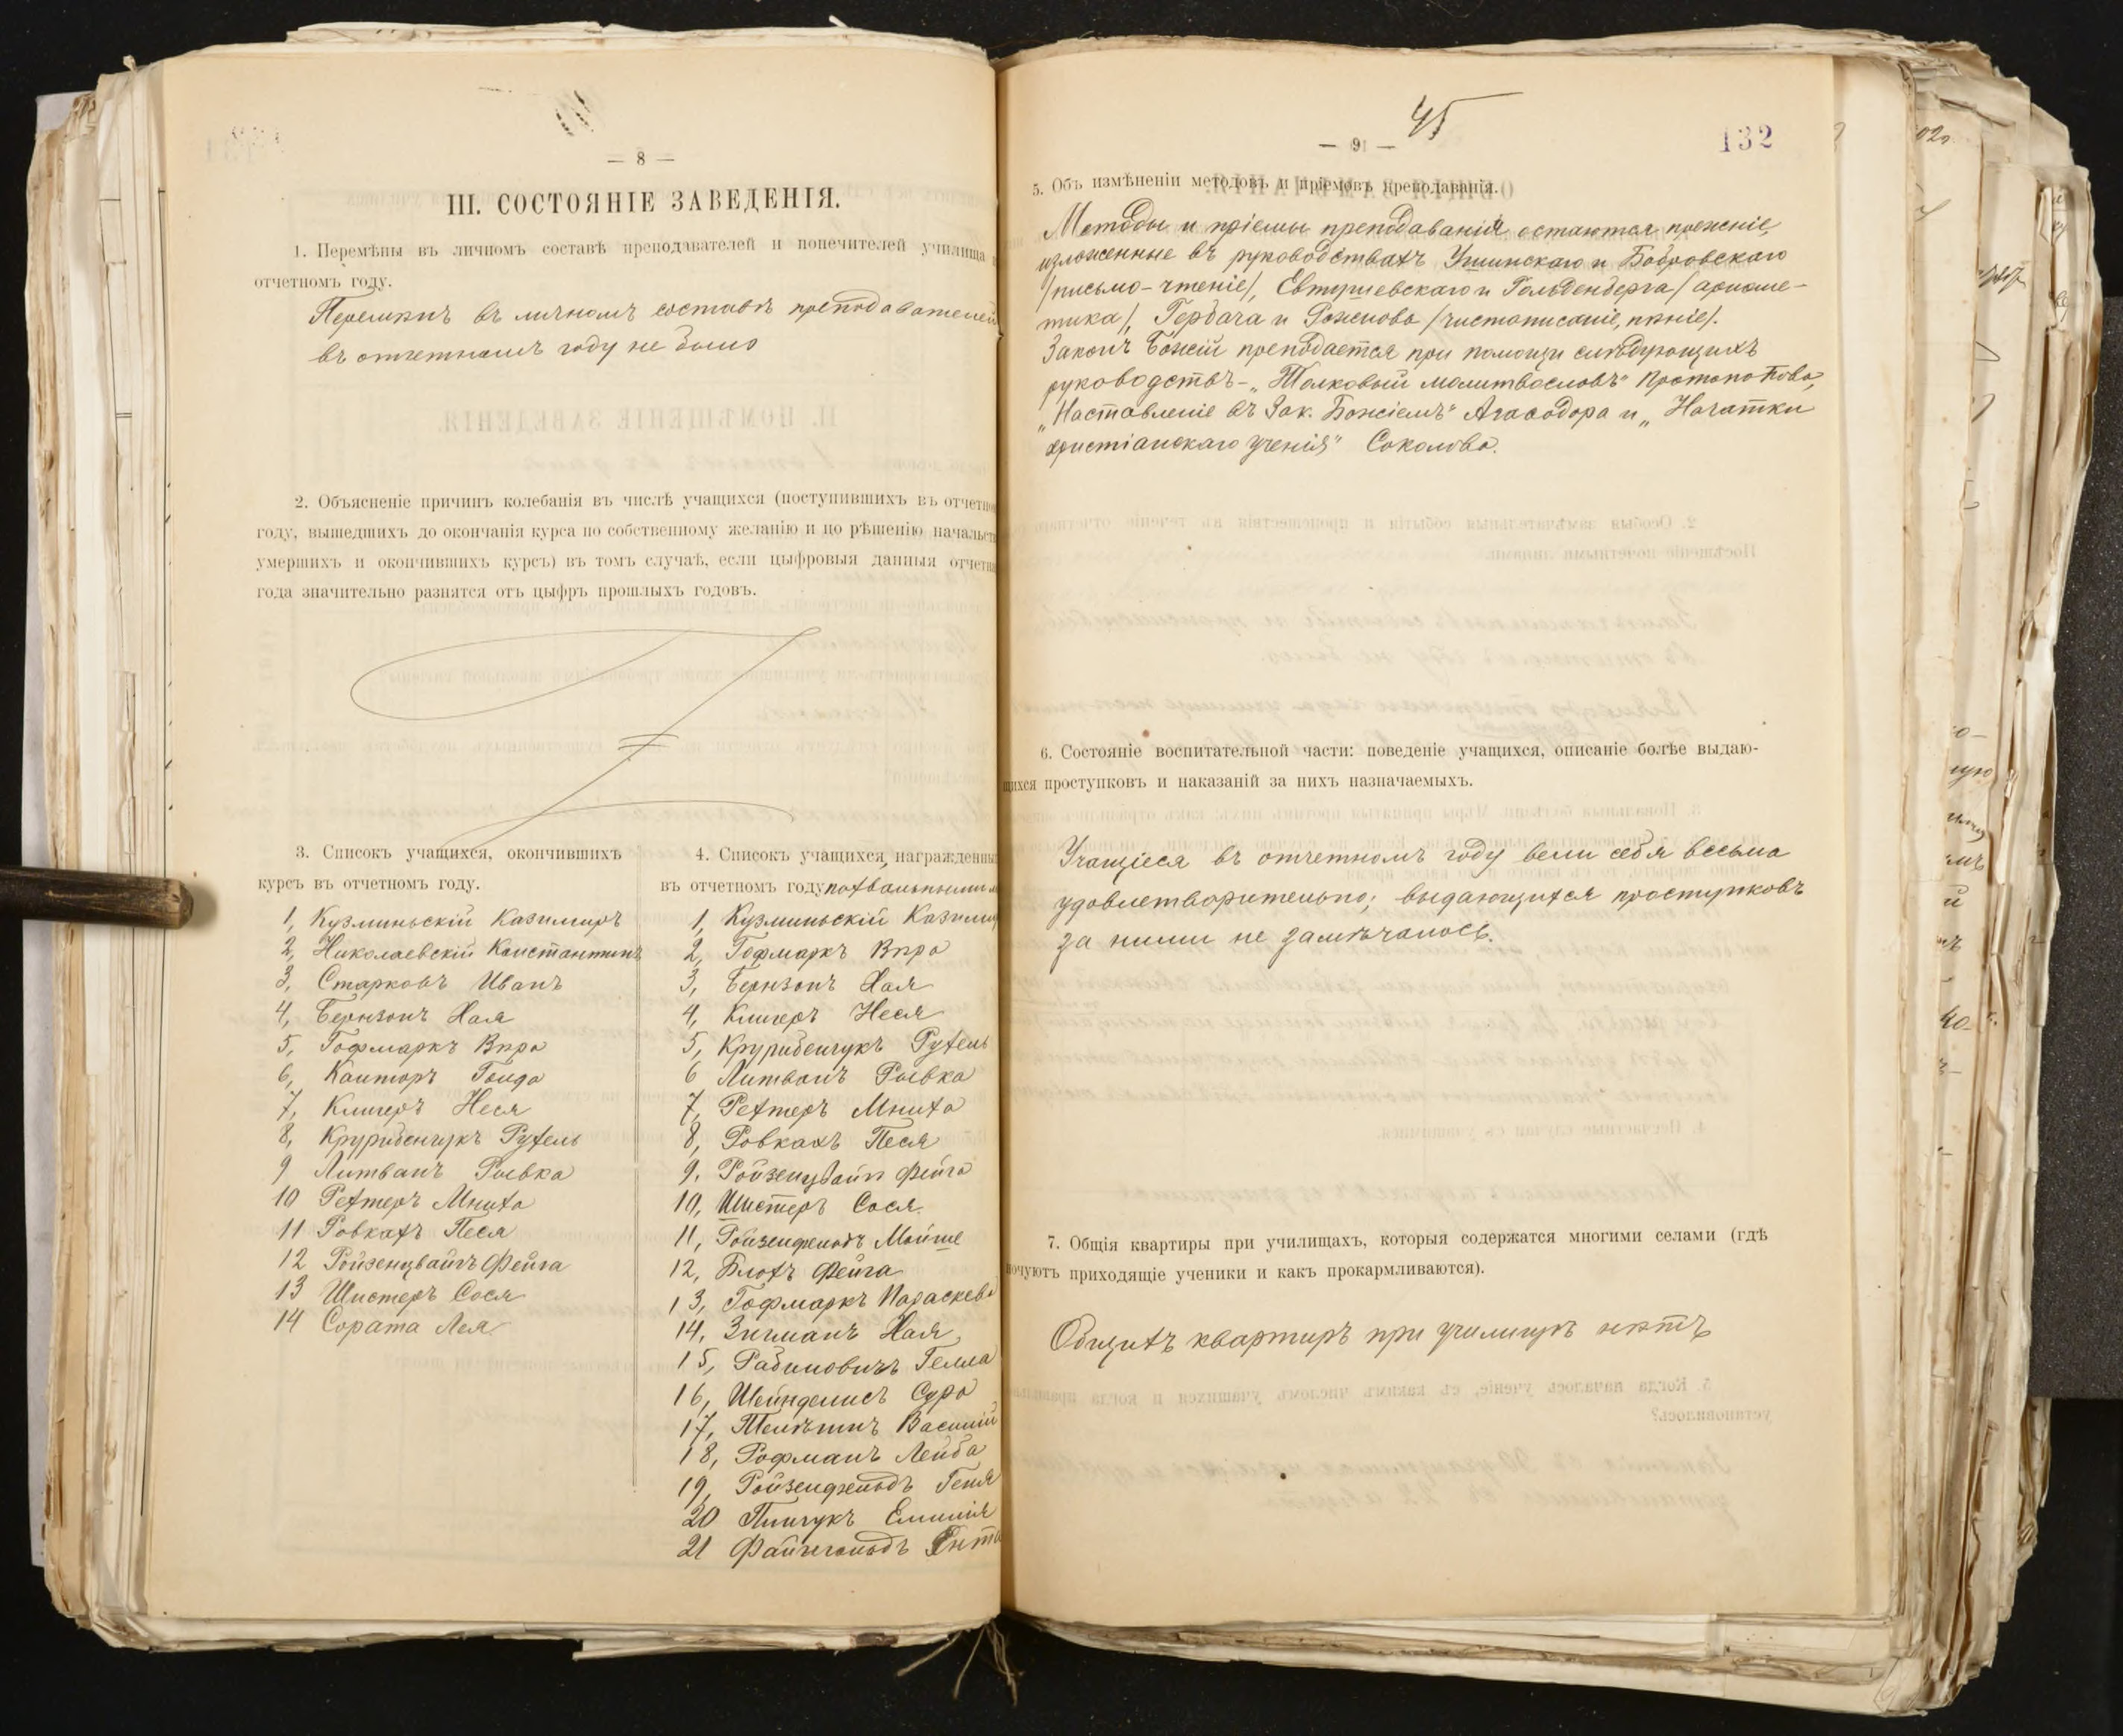 — 8 —
III. СОСТОЯНІЕ ЗАВЕДЕНІЯ.
1. Перемѣны въ личномъ составѣ преподавателей и попечителей училища
отчетномъ году.
Перемѣнъ въ личномъ составѣ преподавателей
въ отчетномъ году не было
2. Объясненіе причинъ колебанія въ числѣ учащихся (поступившихъ въ отчетно
году, вышедшихъ до окончанія курса по собственному желанію и по рѣшенію начальст
умершихъ и окончившихъ курсъ) въ томъ случаѣ, если цыфровыя данныя отчетна
года значительно разнятся отъ цыфръ прошлыхъ годовъ.
3. Списокъ учащихся, окончившихъ
курсъ въ отчетномъ году.
1, Кузминьскій Казимиръ
2, Николаевскій Константинъ
3, Старковъ Иванъ
4, Бернзонъ Хая
5, Гофмаркъ Вѣра
6, Канторъ Гольда
7, Клигеръ Неся
8, Крурибенчукъ Рухель
9 Литванъ Рывка
10 Рехтеръ Мниха
11 Ровкахъ Песя
12 Ройзенцвайгъ Фейга
13 Шистеръ Сося
14 Сората Лея
4. Списокъ учащихся, награжденны
въ отчетномъ году похвальными л
1, Кузминьскій Казими
2, Гофмаркъ Вѣра
3, Бернзонъ Хая
4, Клигеръ Неся
5, Крурибенчукъ Рухель
6 Литванъ Рывка
7, Рехтеръ Мниха
8, Ровкахъ Песя
9. Ройзенцвайгъ Фейга
10, Шистеръ Сося.
11, Ройзенфельдъ Мойше
12, Блохъ Фейга
13, Гофмаркъ Параскева
14. Зигманъ Хая
15, Рабиновичъ Гелла
16, Шейнделисъ Сура
17, Василій
18, Рофманъ Лейба
19, Ройзенфельдъ Геня
20 Пинчукъ Емилія
21 Файнгольдъ Ента
— 9 — 45
132
5. Объ измѣненіи методовъ и пріемовъ преподаванія.
Методы и пріемы преподаванія остаются прежніе,
изложенные въ руководствахъ Ушинскаго и Бобровскаго
/письмо-чтеніе/, Евтушевскаго и Гольденберга /ариѳме-
тика/, Гербача и Рожнова /чистописаніе, пѣніе/.
Законъ Божій преподается при помощи слѣдующихъ
руководствъ- „Толковый молитвословъ" Протопопова,
„Наставленіе въ Зак. Божіемъ" Агаѳодора и „Начатки
христіанскаго ученія" Соколова.
6. Состояніе воспитательной части: поведеніе учащихся, описаніе болѣе выдаю-
щихся проступковъ и наказаній за нихъ назначаемыхъ.
Учащіеся въ отчетномъ году вели себя весьма
удовлетворительно; выдающихся проступковъ
за ними не замѣчалось.
7. Общія квартиры при училищахъ, которыя содержатся многими селами (гдѣ
ночуютъ приходящіе ученики и какъ прокармливаются).
Общихъ квартиръ при училищѣ нѣтъ